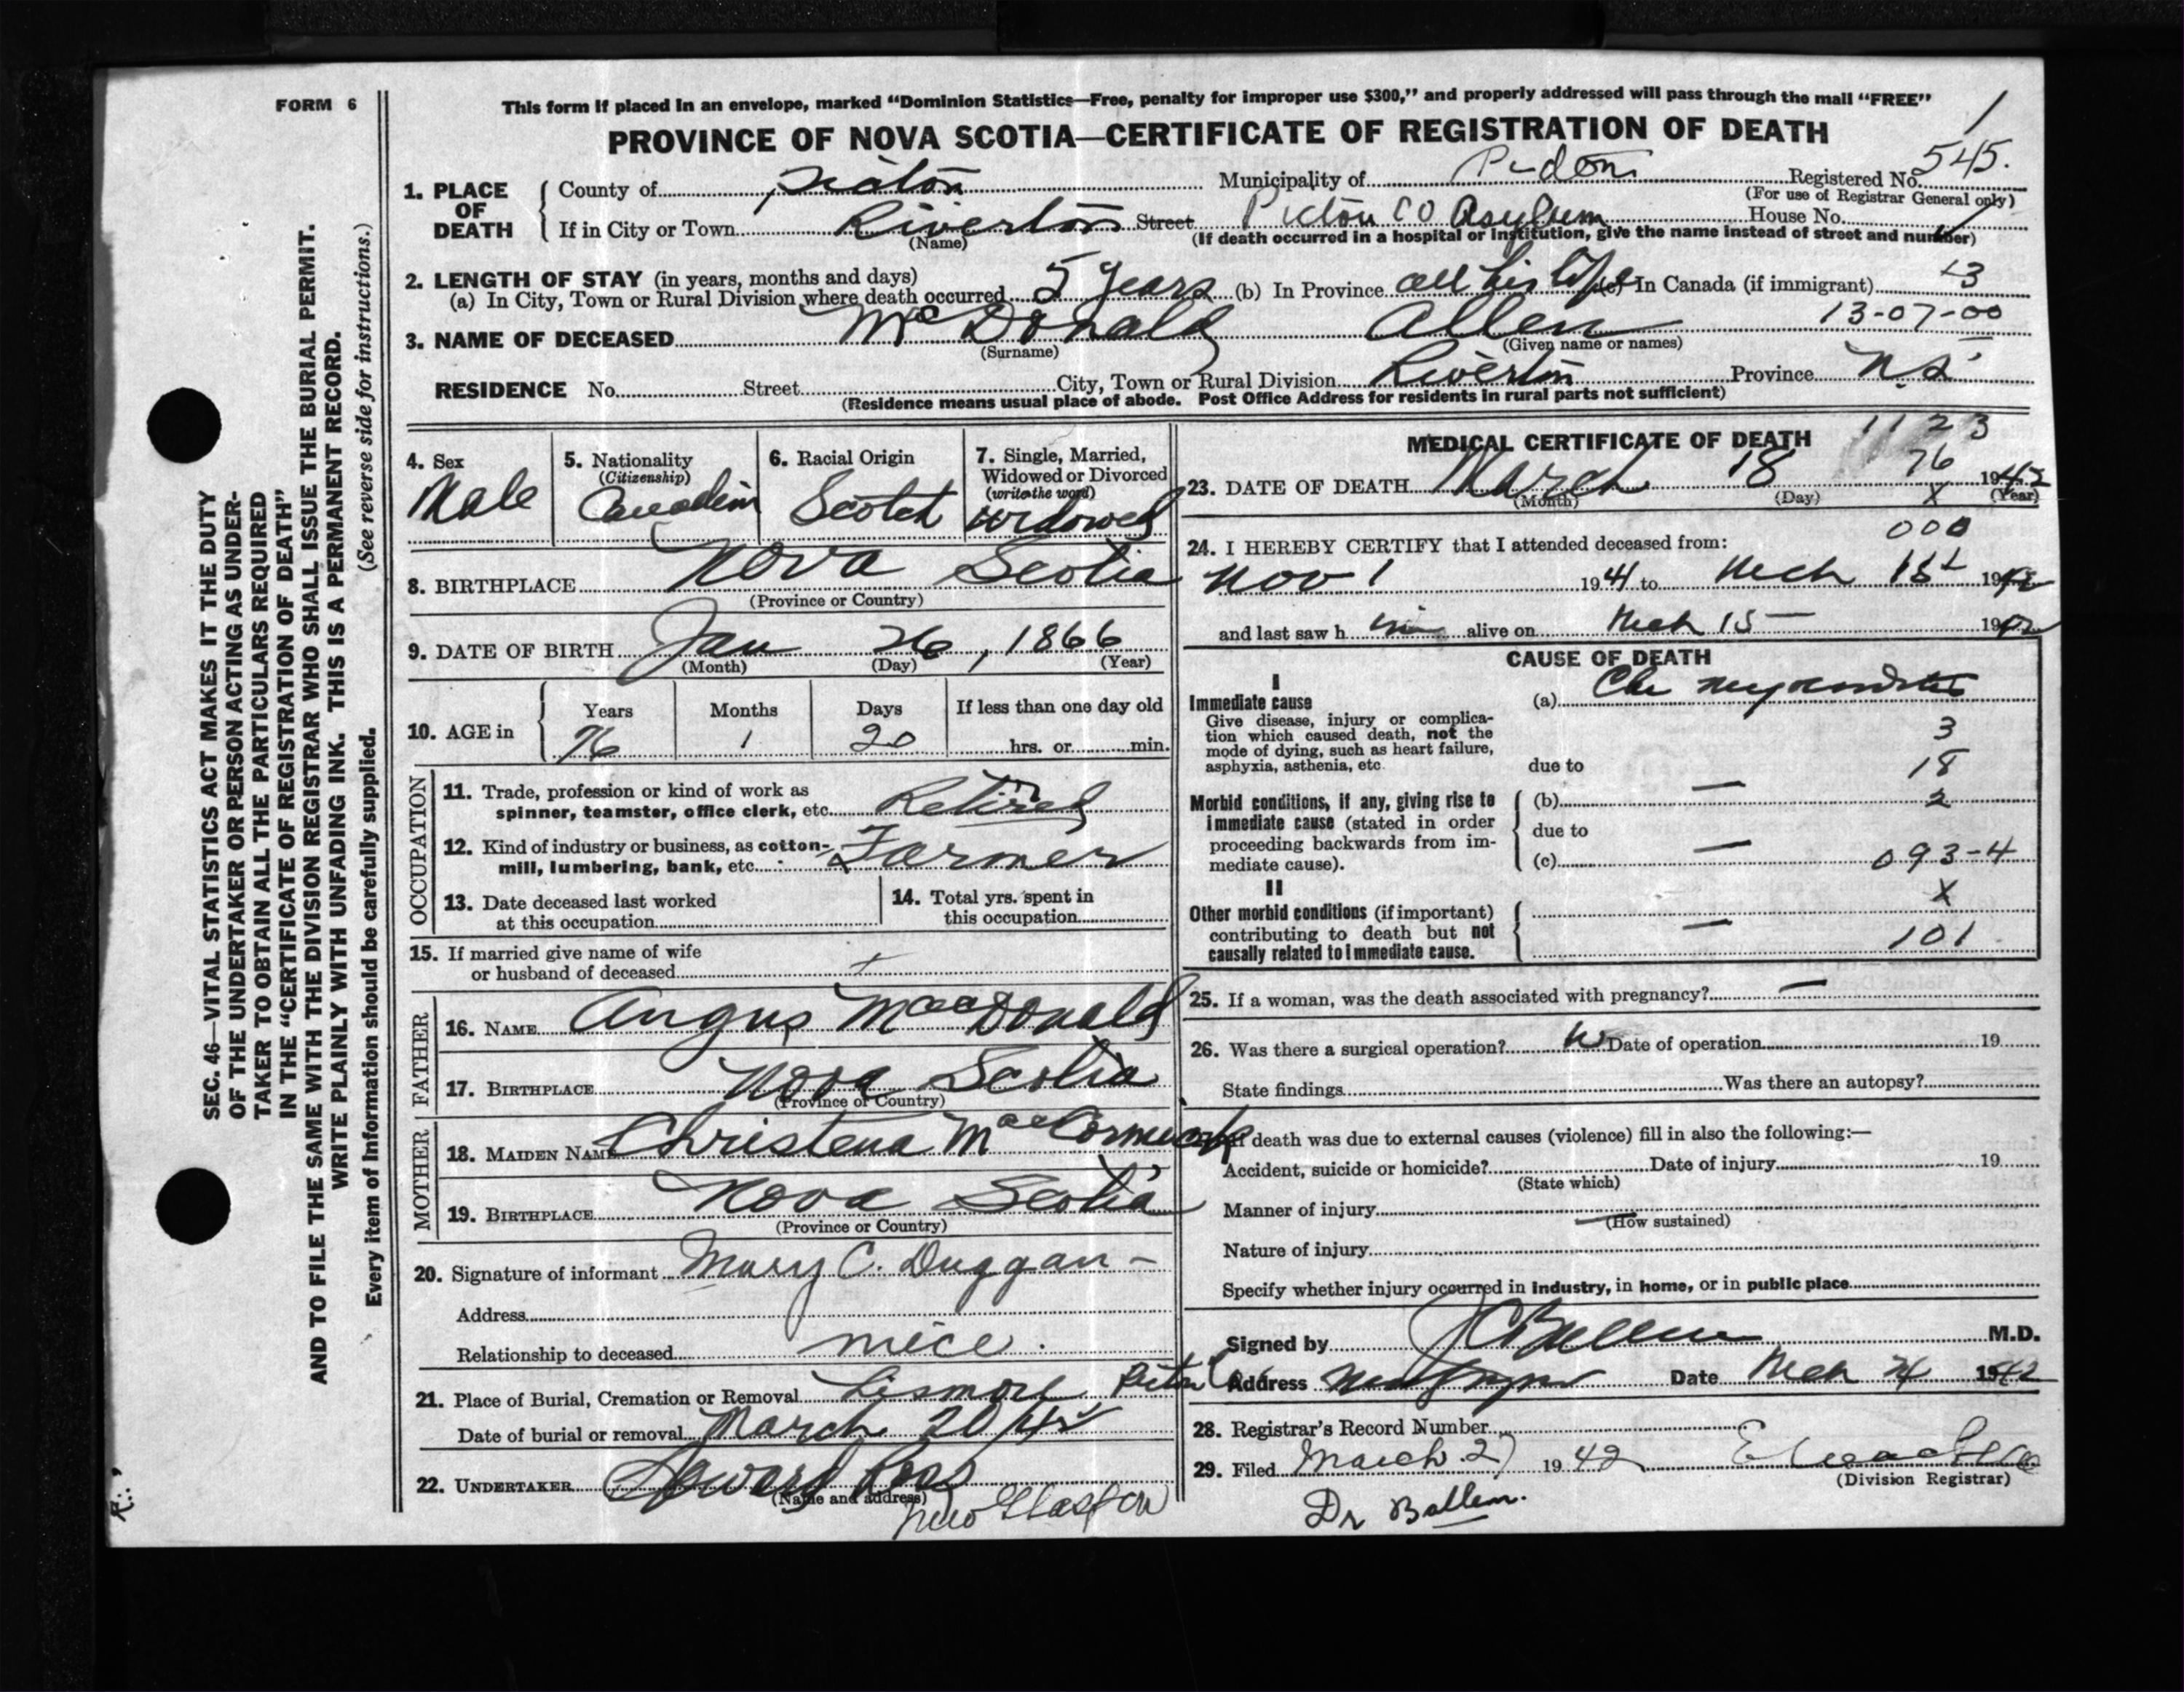 FORM 6
This form if placed in an envelope, marked “Dominion Statistics—Free, penalty for improper use $300,” and properly addressed will pass through the mail “FREE”
PROVINCE OF NOVA SCOTIA—CERTIFICATE OF REGISTRATION OF DEATH
1
1. PLACE OF DEATH
County of Pictou Municipality of Pictou Registered No. 545.
(For use of Registrar General only)
If in City or Town Riverton Street Pictou Co Asylum House No.
(Name) (If death occurred in a hospital or institution, give the name instead of street and number)
2. LENGTH OF STAY (in years, months and days)
(a) In City, Town or Rural Division where death occurred 5 years (b) In Province all his life (c) In Canada (if immigrant) 13
13-07-00
3. NAME OF DECEASED McDonald Allen
(Surname) (Given name or names)
RESIDENCE No. Street City, Town or Rural Division Riverton Province N.S.
(Residence means usual place of abode. Post Office Address for residents in rural parts not sufficient)
4. Sex Male
5. Nationality (Citizenship) Canadian
6. Racial Origin Scotch
7. Single, Married, Widowed or Divorced (write the word) Widowed
8. BIRTHPLACE Nova Scotia
(Province or Country)
9. DATE OF BIRTH Jan 26, 1866
(Month) (Day) (Year)
10. AGE in Years 76 Months 1 Days 20 If less than one day old hrs. or min.
OCCUPATION
11. Trade, profession or kind of work as spinner, teamster, office clerk, etc. Retired
12. Kind of industry or business, as cotton-mill, lumbering, bank, etc. Farmer
13. Date deceased last worked at this occupation
14. Total yrs. spent in this occupation
15. If married give name of wife or husband of deceased
FATHER
16. NAME Angus MacDonald
17. BIRTHPLACE Nova Scotia
(Province or Country)
MOTHER
18. MAIDEN NAME Christena MacCormick
19. BIRTHPLACE Nova Scotia
(Province or Country)
20. Signature of informant Mary C. Duggan
Address
Relationship to deceased niece.
21. Place of Burial, Cremation or Removal Lismore Pictou Co.
Date of burial or removal March 20/42
22. UNDERTAKER Howard Ross
(Name and address)
New Glasgow
MEDICAL CERTIFICATE OF DEATH
1123
76
X
23. DATE OF DEATH March 18 1942
(Month) (Day) (Year)
000
24. I HEREBY CERTIFY that I attended deceased from:
Nov 1 1941 to Mch 15 1942
and last saw him alive on Mch 15 1942
CAUSE OF DEATH
I
Immediate cause
Give disease, injury or complication which caused death, not the mode of dying, such as heart failure, asphyxia, asthenia, etc.
(a) Chr myocarditis
3
due to 18
Morbid conditions, if any, giving rise to immediate cause (stated in order proceeding backwards from immediate cause).
(b) — 2
due to
(c) — 093-4
II
X
Other morbid conditions (if important) contributing to death but not causally related to immediate cause.
— 101
25. If a woman, was the death associated with pregnancy? —
26. Was there a surgical operation? Date of operation 19
State findings Was there an autopsy?
If death was due to external causes (violence) fill in also the following:—
Accident, suicide or homicide? Date of injury 19
(State which)
Manner of injury
(How sustained)
Nature of injury
Specify whether injury occurred in industry, in home, or in public place
Signed by J C Ballem M.D.
Address New Glasgow Date Mch 1942
28. Registrar's Record Number
29. Filed March 27 1942
(Division Registrar)
Dr Ballem.
SEC. 46—VITAL STATISTICS ACT MAKES IT THE DUTY
OF THE UNDERTAKER OR PERSON ACTING AS UNDER-
TAKER TO OBTAIN ALL THE PARTICULARS REQUIRED
IN THE “CERTIFICATE OF REGISTRATION OF DEATH”
AND TO FILE THE SAME WITH THE DIVISION REGISTRAR WHO SHALL ISSUE THE BURIAL PERMIT.
WRITE PLAINLY WITH UNFADING INK. THIS IS A PERMANENT RECORD.
Every item of information should be carefully supplied. (See reverse side for instructions.)